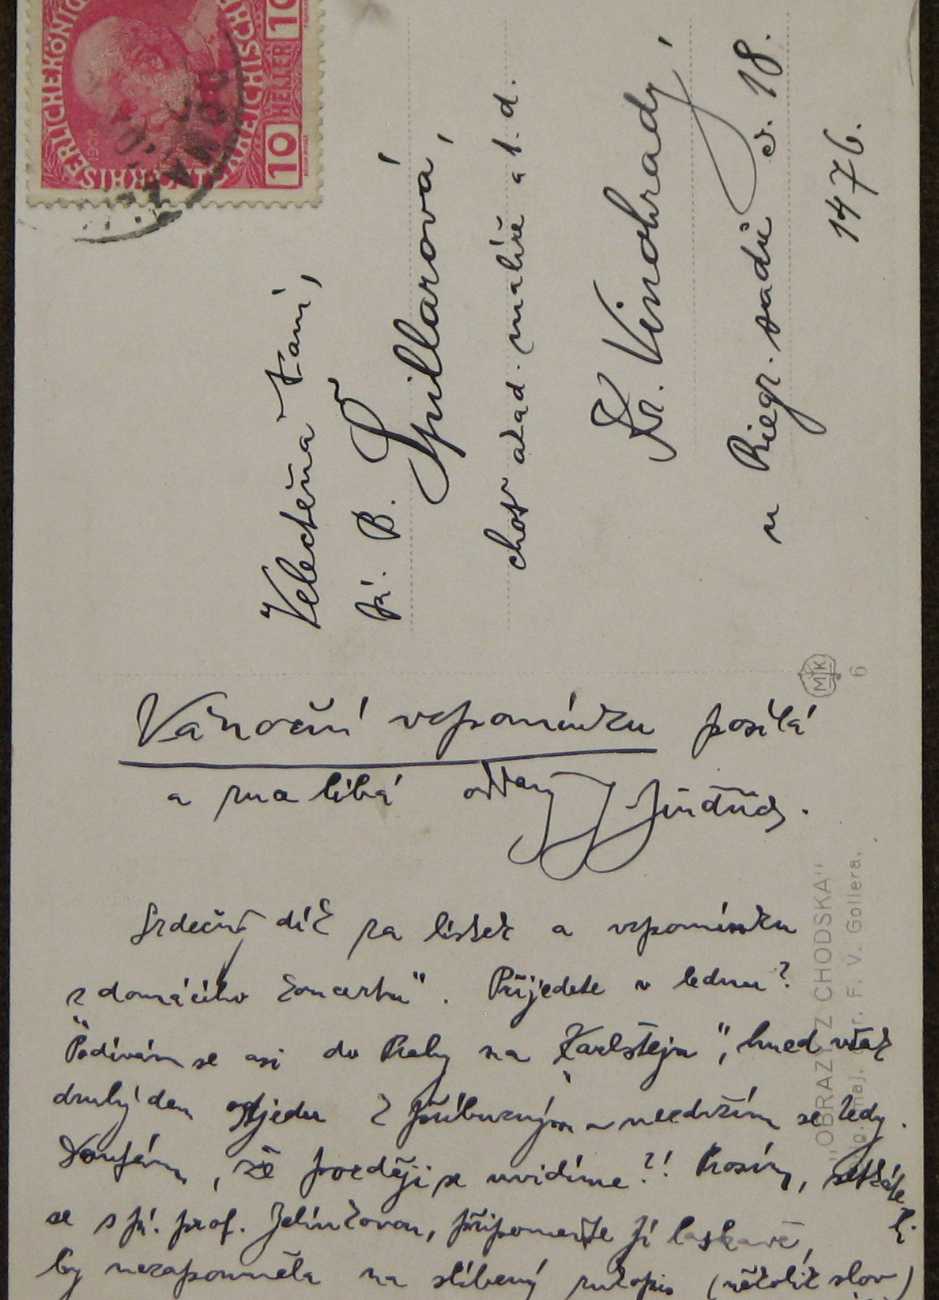 10 HELLER 10
Velectěná Paní,
Pí. B. Špillarová,
choť akad. malíře a t. d.
Kr. Vinohrady,
u Riegr. sadů č. 18.
1476.
Vánoční vzpomínku posílá
a ruku líbá oddaný J. Jindřich.
Srdečný dík za lístek a vzpomínku
z domácího koncertu". Přijedete v lednu?
Podívám se asi do Prahy na "Karlštejn", hned však
druhý den odjedu k příbuzným – nezdržím se tedy.
Doufám, že později se uvidíme?! Prosím, setkáte-li
se s pí. prof. Jelínkovou, připomeňte jí laskavě,
by nezapomněla na slíbený rukopis (několik slov)
MJK
6
"OBRAZY Z CHODSKA"
F. V. Gollera,